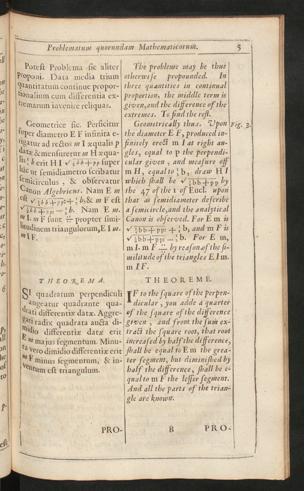 Problematum quorundam Mathematicorum. 5
Potest Problema sic aliter
proponi. Data media trium
quantitatum continue propor-
tionalium cum differentia ex-
tremarum invenire reliquas.
Geometrice sic. Perficitur
super diametro E F infinita e-
rigatur ad rectos m I æqualis p
datæ; & mensurentur m H æqua-
lis ½ b erit H I √¼bb+pp super
hac ut semidiametro scribatur
semicirculus, & observatur
Canon Algebricus. Nam E m
est √¼bb+pp:+½b, & m F est
√¼bb+pp:−½b. Nam E m.
m I. m F sunt ∺ propter simi-
litudinem triangulorum, E I m.
m I F.
THEOREMA.
SI quadratum perpendiculi
angeatur quadrante qua-
drati differentiæ datæ. Aggre-
gati radix quadrata aucta di-
midio differentiæ datæ erit
E m majus segmentum. Minu-
ta vero dimidio differentiæ erit
m F minus segmentum, & in-
ventum est triangulum.
PRO-
The problem may be thus
otherwise propounded. In
three quantities in continual
proportion, the middle term is
given, and the difference of the
extremes. To find the rest.
Geometrically thus. Upon Fig. 3.
the diameter E F, produced in-
finitely erect m I at right an-
gles, equal to p the perpendi-
cular given, and measure off
m H, equal to ½ b, draw H I
which shall be √¼bb+pp by
the 47 of the 1 of Eucl. upon
that as semidiameter describe
a semicircle, and the analytical
Canon is observed. For E m is
√¼bb+pp:+½ b, and m F is
√¼bb+pp:−½ b. For E m,
m I. m F ∺ by reason of the si-
militude of the triangles E I m.
m I F.
THEOREME.
IF to the square of the perpen-
dicular, you adde a quarter
of the square of the difference
given, and from the sum ex-
tract the square root, that root
increased by half the difference,
shall be equal to E m the grea-
ter segment, but diminished by
half the difference, shall be e-
qual to m F the lesser segment.
And all the parts of the trian-
gle are known.
B PRO-